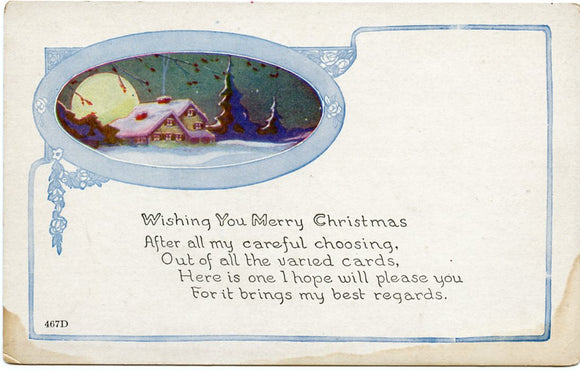 Wishing You Merry Christmas
After all my careful choosing,
Out of all the varied cards,
Here is one I hope will please you
For it brings my best regards.
467D